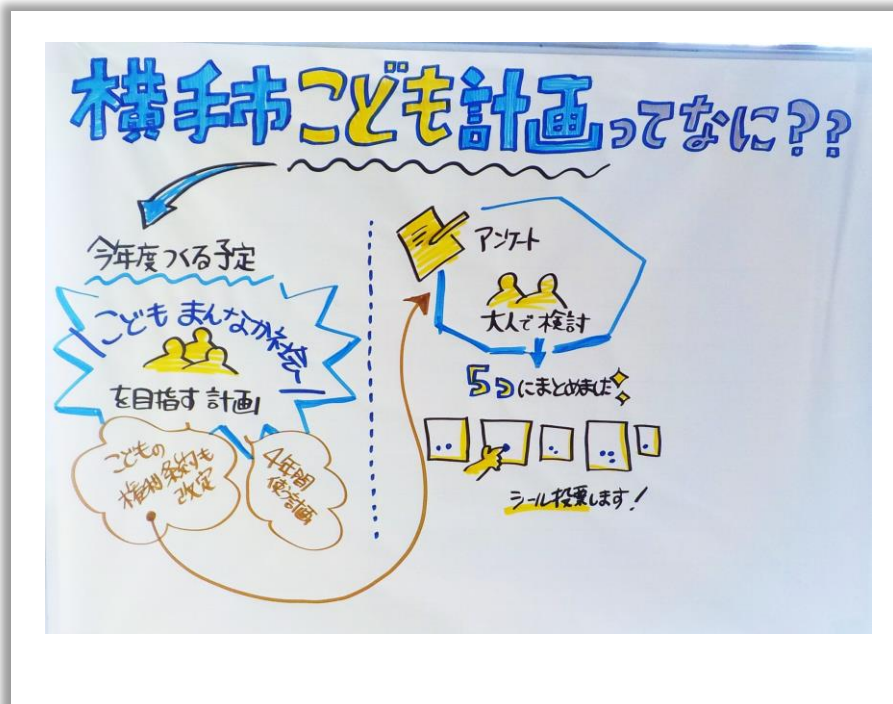 横手市こども計画ってなに??
今年度つくる予定
こどもまんなか社会
を目指す計画
こどもの
権利条約も
改定
4年間
使う計画
アンケート
大人で検討
5つにまとめました
シール投票します!